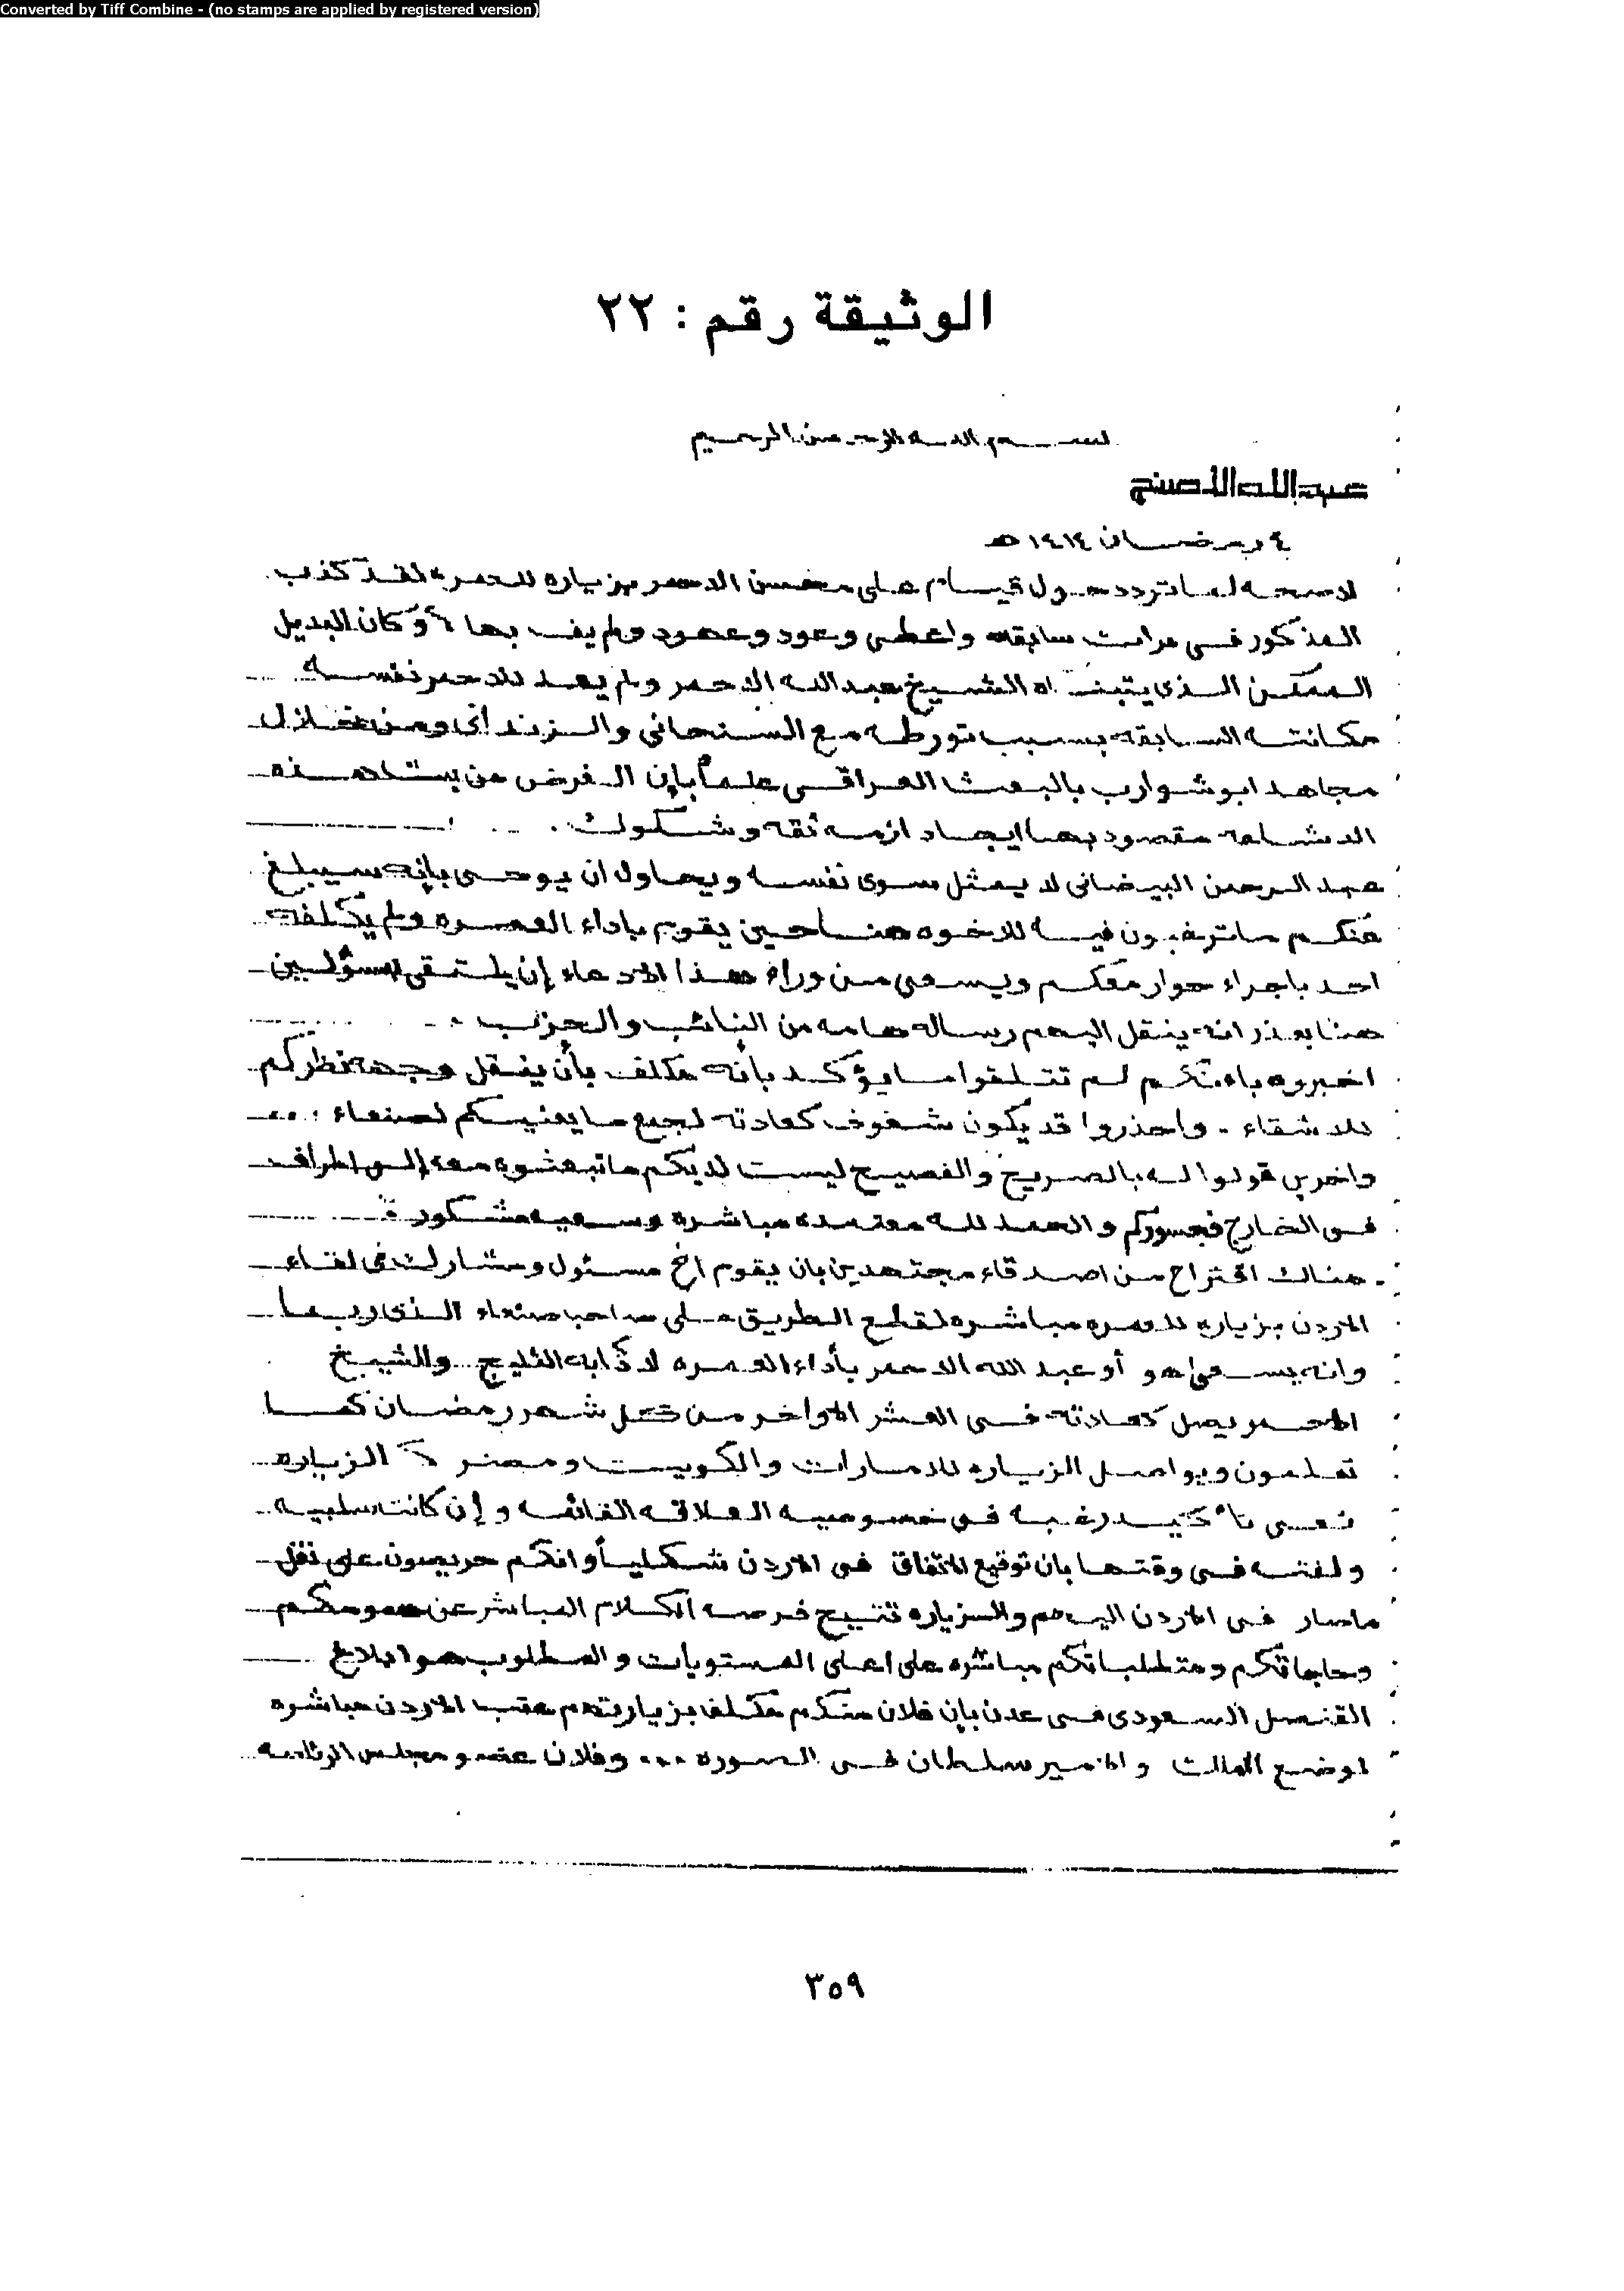 Converted by Tiff Combine - (no stamps are applied by registered version)
الوثيقة رقم : ٢٢
بسم الله الرحمن الرحيم
عبدالله الاصنج
٤ رمضان ١٤١٤ هـ
لاصحه لما تردد حول قيام على محسن الاحمر بزياره للعمره لقد كذب
المذكور فى مرات سابقه واعطى وعود وعهود ولم يف بها وكان البديل
الممكن الذى يتبناه الشيخ عبدالله الاحمر ولم يعد للاحمر نفسه
مكانته السابقه بسبب تورطه مع السنحانى والزندانى ومن خلال
مجاهد ابو شوارب بالبعث العراقى علماً بإن الغرض من بث هذه
الاشاعه مقصود بها ايجاد ازمه ثقه وشكوك .
عبد الرحمن البيضانى لا يمثل سوى نفسه ويحاول ان يوحى بإنه سيبلغ
عنكم ماترغبون فيه للاخوه هنا حين يقوم باداء العمره ولم يكلفه
احد باجراء حوار معكم ويسعى من وراء هذا الادعاء إن يلتقى بمسؤلين
هنا بعذر انه ينقل اليهم رساله هامه من النائب والحزب .
اخبروه باءنكم لم تتلقوا مايؤكد بأنه مكلف بأن ينقل وجهه نظركم
للاشقاء . واحذروا قد يكون شغوف كعادته لجمع مايعنيكم لصنعاء
واخرين قولوا له بالصريح والفصيح ليست لديكم ماتبعثوه معه إلى اطراف
فى الخارج فجسوركم والحمد لله معتمده مباشره وسعيه مشكور
. هناك اقتراح من اصدقاء مجتهدين بان يقوم اخ مسئول ومشارك فى لقاء
الاردن بزياره للعمره مباشره لقطع الطريق على صاحب صنعاء الذى ربما
وانه يسعى هو أو عبد الله الاحمر بأداء العمره لاذابه الثليج .. والشيخ
الاحمر يصل كعادته فى العشر الاواخر من كل شهر رمضان كما
تعلمون ويواصل الزياره للامارات والكويت ومصر الزياره
تعنى تاءكيد رغبه فى خصوصيه العلاقه القائمه وإن كانت سلبيه
ولفته فى وقتها بان توقيع الاتفاق فى الاردن شكلياً وانكم حريصون على نقل
ماصار فى الاردن اليهم والزياره تتيح فرصه الكلام المباشر عن همومكم
وحاجاتكم ومتطلباتكم مباشره على اعلى المستويات والمطلوب هو ابلاغ
القنصل السعودى فى عدن بإن فلان منكم مكلف بزيارتهم عقب الاردن مباشره
لوضع الملك والامير سلطان فى الصوره ... وفلان عضو مجلس الرئاسه
٣٥٩